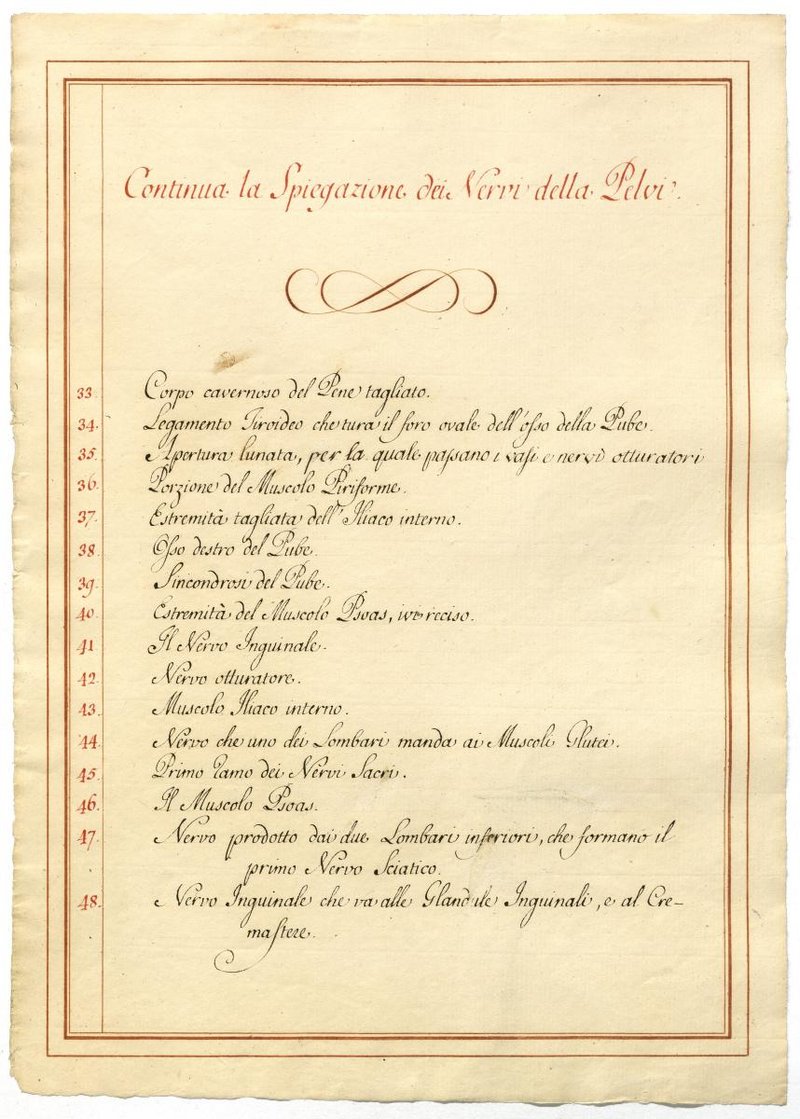 Continua la Spiegazione dei Nervi della Pelvi.
33. Corpo cavernoso del Pene tagliato.
34. Legamento Tiroideo che tura il foro ovale dell'osso della Pube.
35. Apertura lunata, per la quale passano i vasi e nervi otturatori
36. Porzione del Muscolo Piriforme.
37. Estremità tagliata dell'Iliaco interno.
38. Osso destro del Pube.
39. Sincondrosi del Pube.
40. Estremità del Muscolo Psoas, ivi reciso.
41. Il Nervo Inguinale.
42. Nervo otturatore.
43. Muscolo Iliaco interno.
44. Nervo che uno dei Lombari manda ai Muscoli Glutei.
45. Primo Ramo dei Nervi Sacri.
46. Il Muscolo Psoas.
47. Nervo prodotto dai due Lombari inferiori, che formano il
primo Nervo Sciatico.
48. Nervo Inguinale che va alle Glandule Inguinali, e al Cre-
mastere.